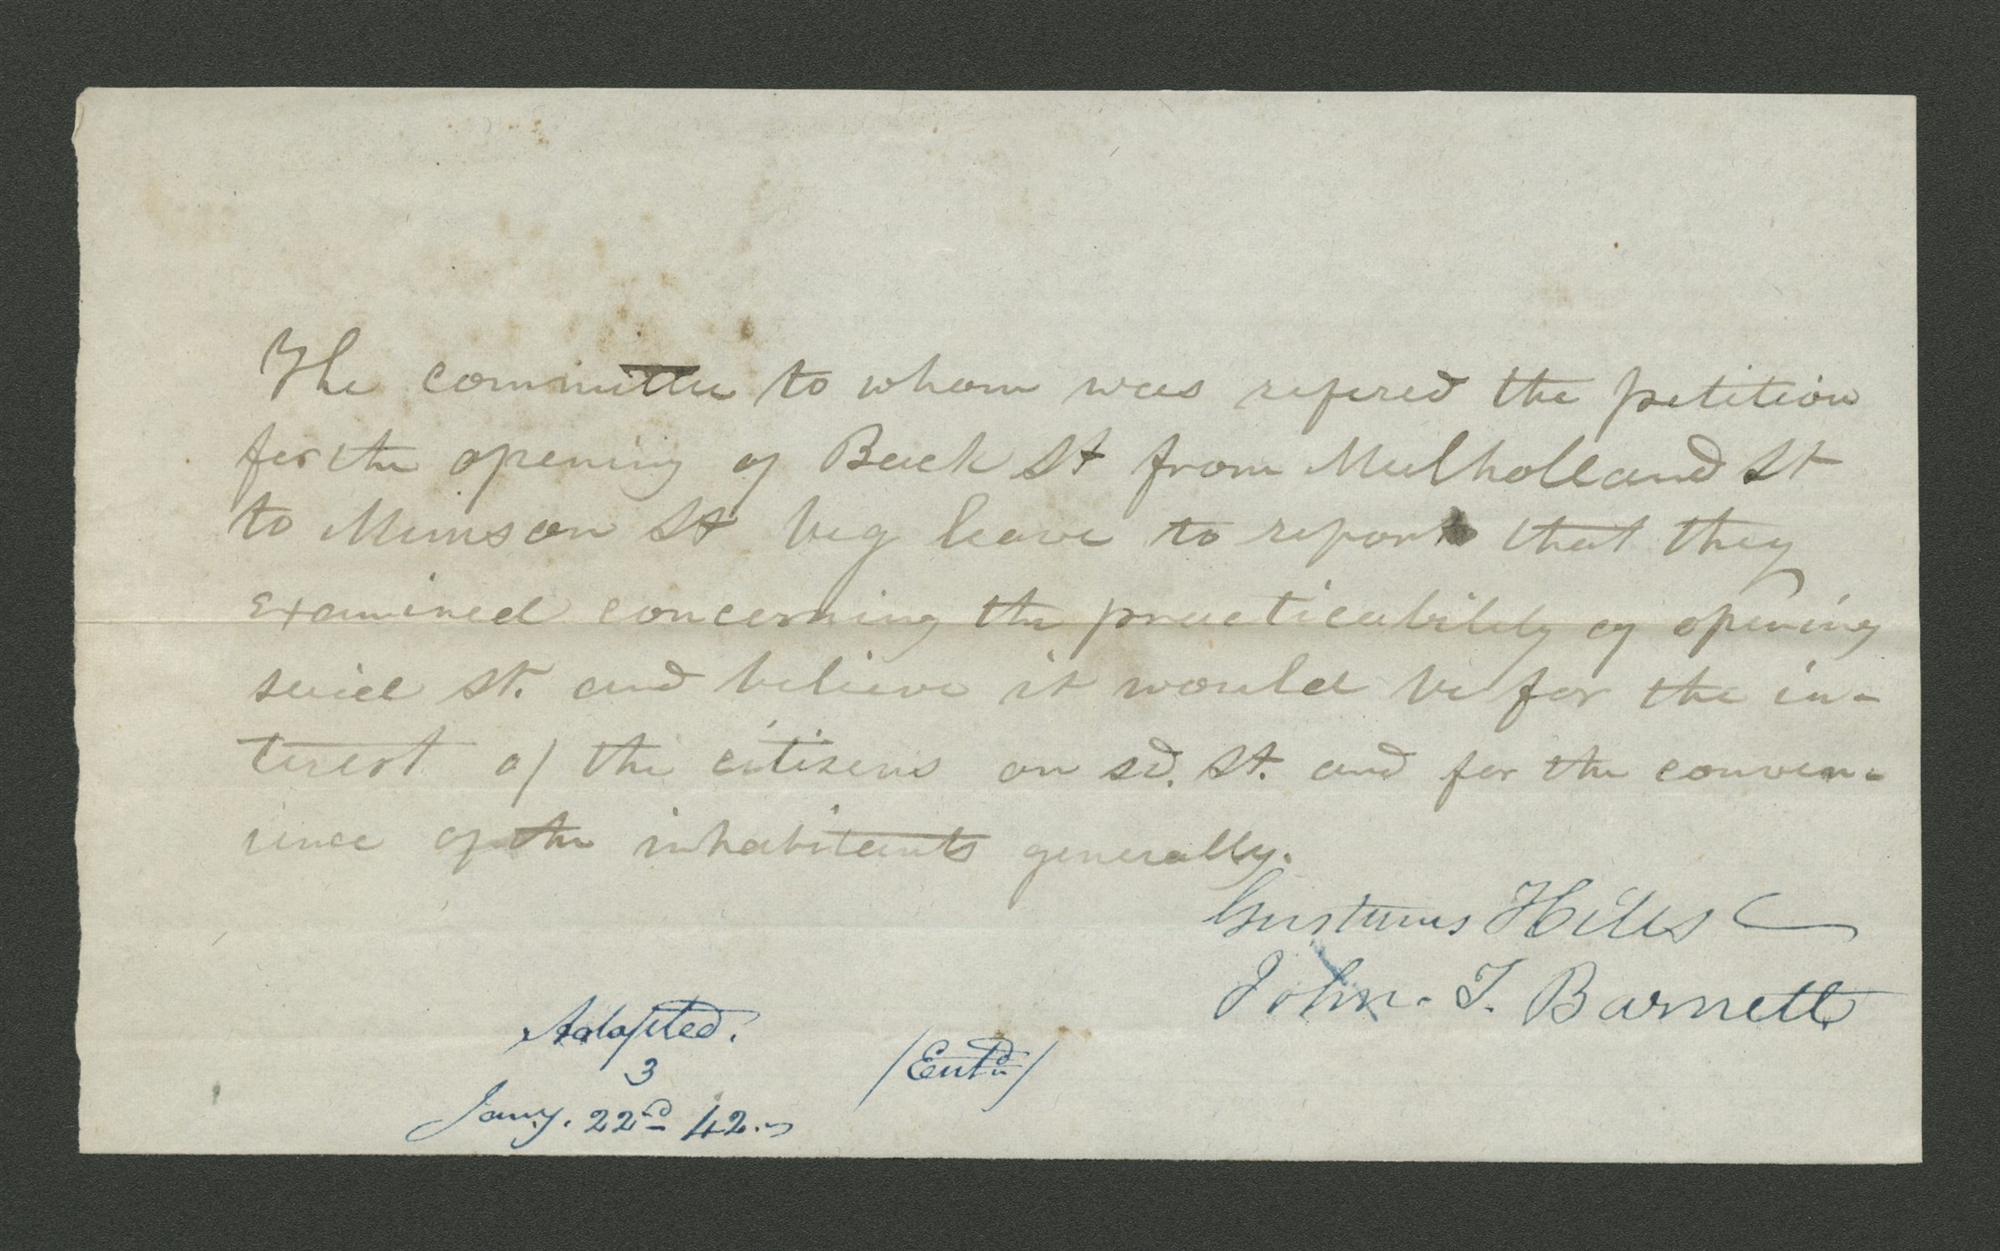 The committee to whom was refered the petition
for the opening of Back St from Mulholland St
to Munson St beg leave to report that they
examined concerning the practicability of opening
said St. and believe it would be for the in-
terest of the citizens on sd. St. and for the conven-
ience of the inhabitants generally.
Gustavus Hills
John. T. Barnett
Adopted.
3
Jany. 22d 42.
/Entd/